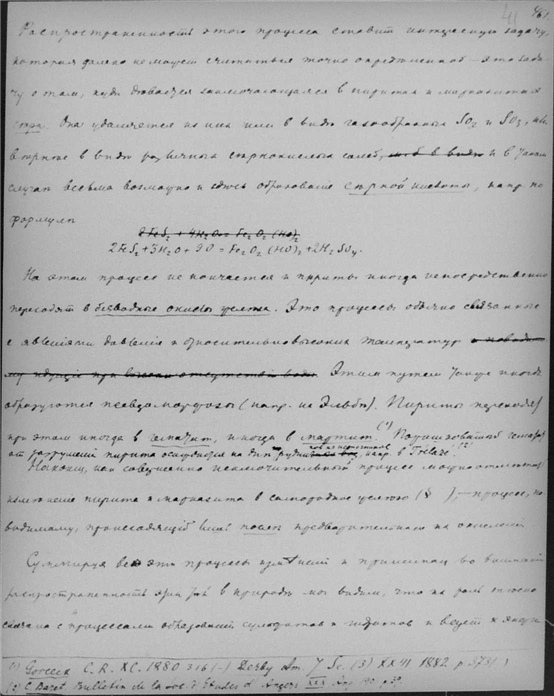 Распространенность этого процесса ставит интересную задачу,
которая далеко не может считаться точно определенной – это зада-
чу о том, куда девается заключающаяся в пиритах и марказитах
сера. Она удаляется из них или в виде газообразных SO2 и SO3, или
в виде различных сернокислых солей, и в таком
случае весьма возможно и здесь образование серной кислоты, напр. по
формуле
2FeS2 + 4H2O = Fe2O2(HO)2
2FeS2 + 3H2O + 9O = Fe2O2(HO)2 + 2H2SO4.
На этом процесс не кончается и пириты иногда непосредственно
переходят в безводные окислы железа. Это процессы обычно связанные
с явлениями давления и относительно высоких температур
Этим путем также иногда
образуются псевдоморфозы (напр. на Эльбе). Пириты переходят
при этом иногда в гематит, иногда в мартит. (1)
от разрушения пирита на дне напр. в (2)
Наконец, как совершенно исключительный процесс можно отметить
изменение пирита и марказита в самородное железо (§ ), – процесс, по-
видимому, происходящий лишь после предварительного их окисления.
Суммируя все эти процессы изменений и принимая во внимание
распространенность в природе мы видим, что их роль тесно
связана с процессами образований сульфатов и гидратов и ведет к
(1) Gorceix C. R. XC. 1880. 316 (–) Derby Am. J. Sc. (3) XXIII 1882. p. 373.
(2) C. Baret. Bulletin de la Soc. d'Etudes d'Angers XXX